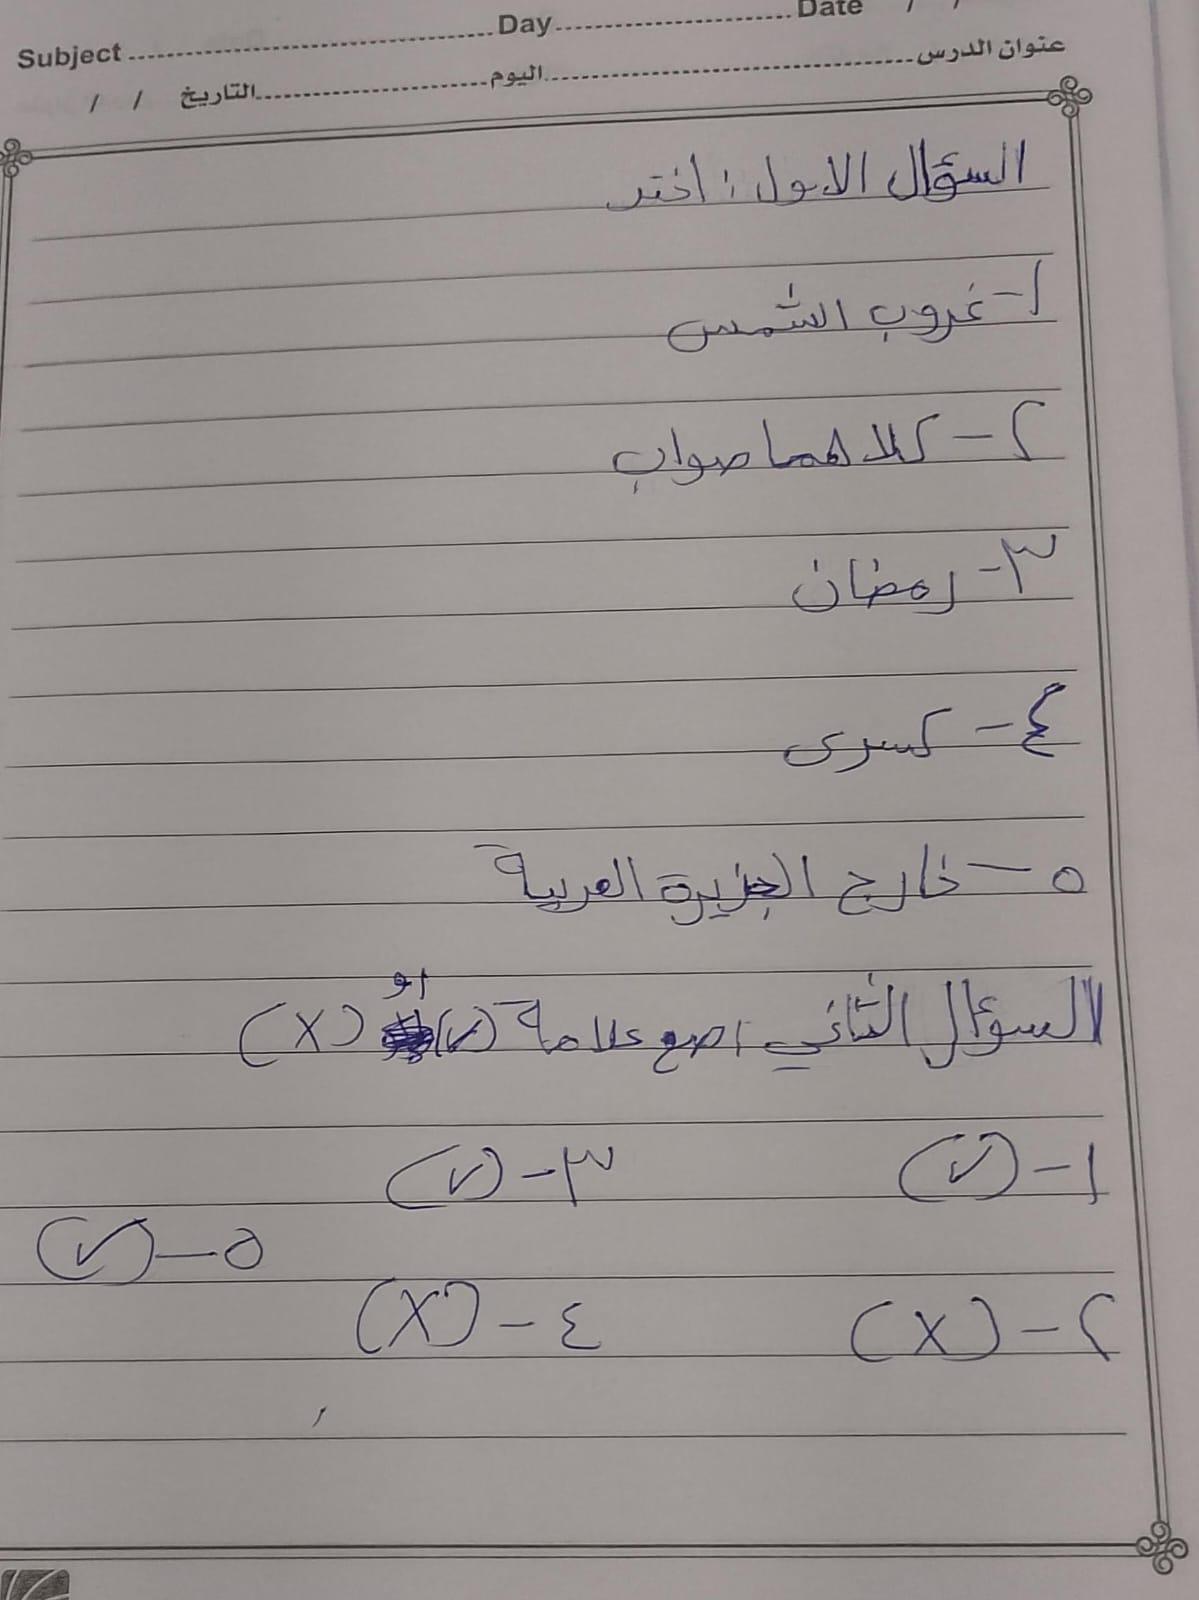 Subject Day Date / /
عنوان الدرس اليوم التاريخ / /
السؤال الاول : اختر
١- غروب الشمس
٢- كلاهما صواب
٣- رمضان
٤- كسرى
٥- خارج الجزيرة العربية
السؤال الثاني : اضع علامة (✓) او (X)
١- (✓) ٣- (✓)
٥- (✓)
٢- (X) ٤- (X)